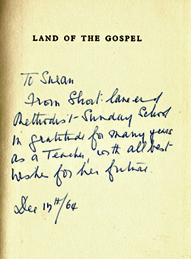 LAND OF THE GOSPEL
To Susan
From Short Lane
Methodist Sunday School
in gratitude for many years
as a Teacher, with all best
wishes for her future.
Dec 19th/64